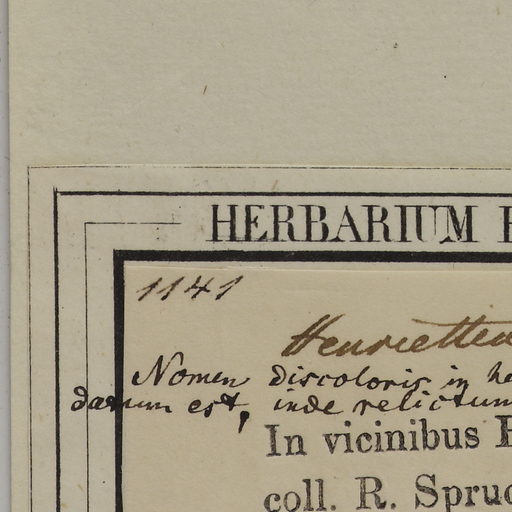 HERBARIUM
1141
Henriettea
Nomen discoloris in he
datum est, inde relictum
In vicinibus
coll. R. Spruc